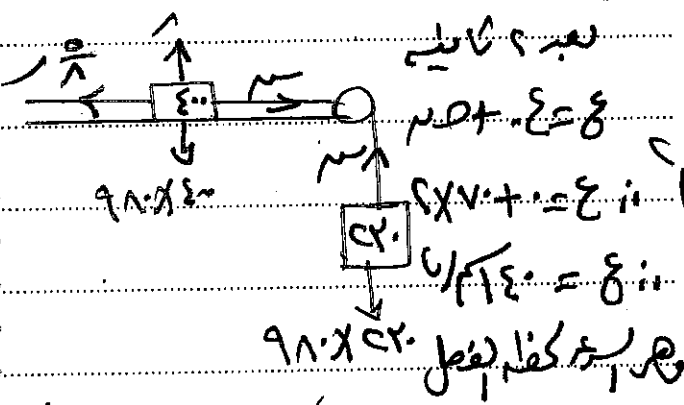 ر
٥/٨ ر
٤٠٠
ش
٩٨٠ × ٤٠٠
ش
٢٢٠
٩٨٠ × ٢٢٠
بعد ٢ ثانية
ع = ع. + حـ ن
∴ ع = ٠ + ٧٠ × ٢
∴ ع = ١٤٠ سم/ث
السرعة لحظة الفصل